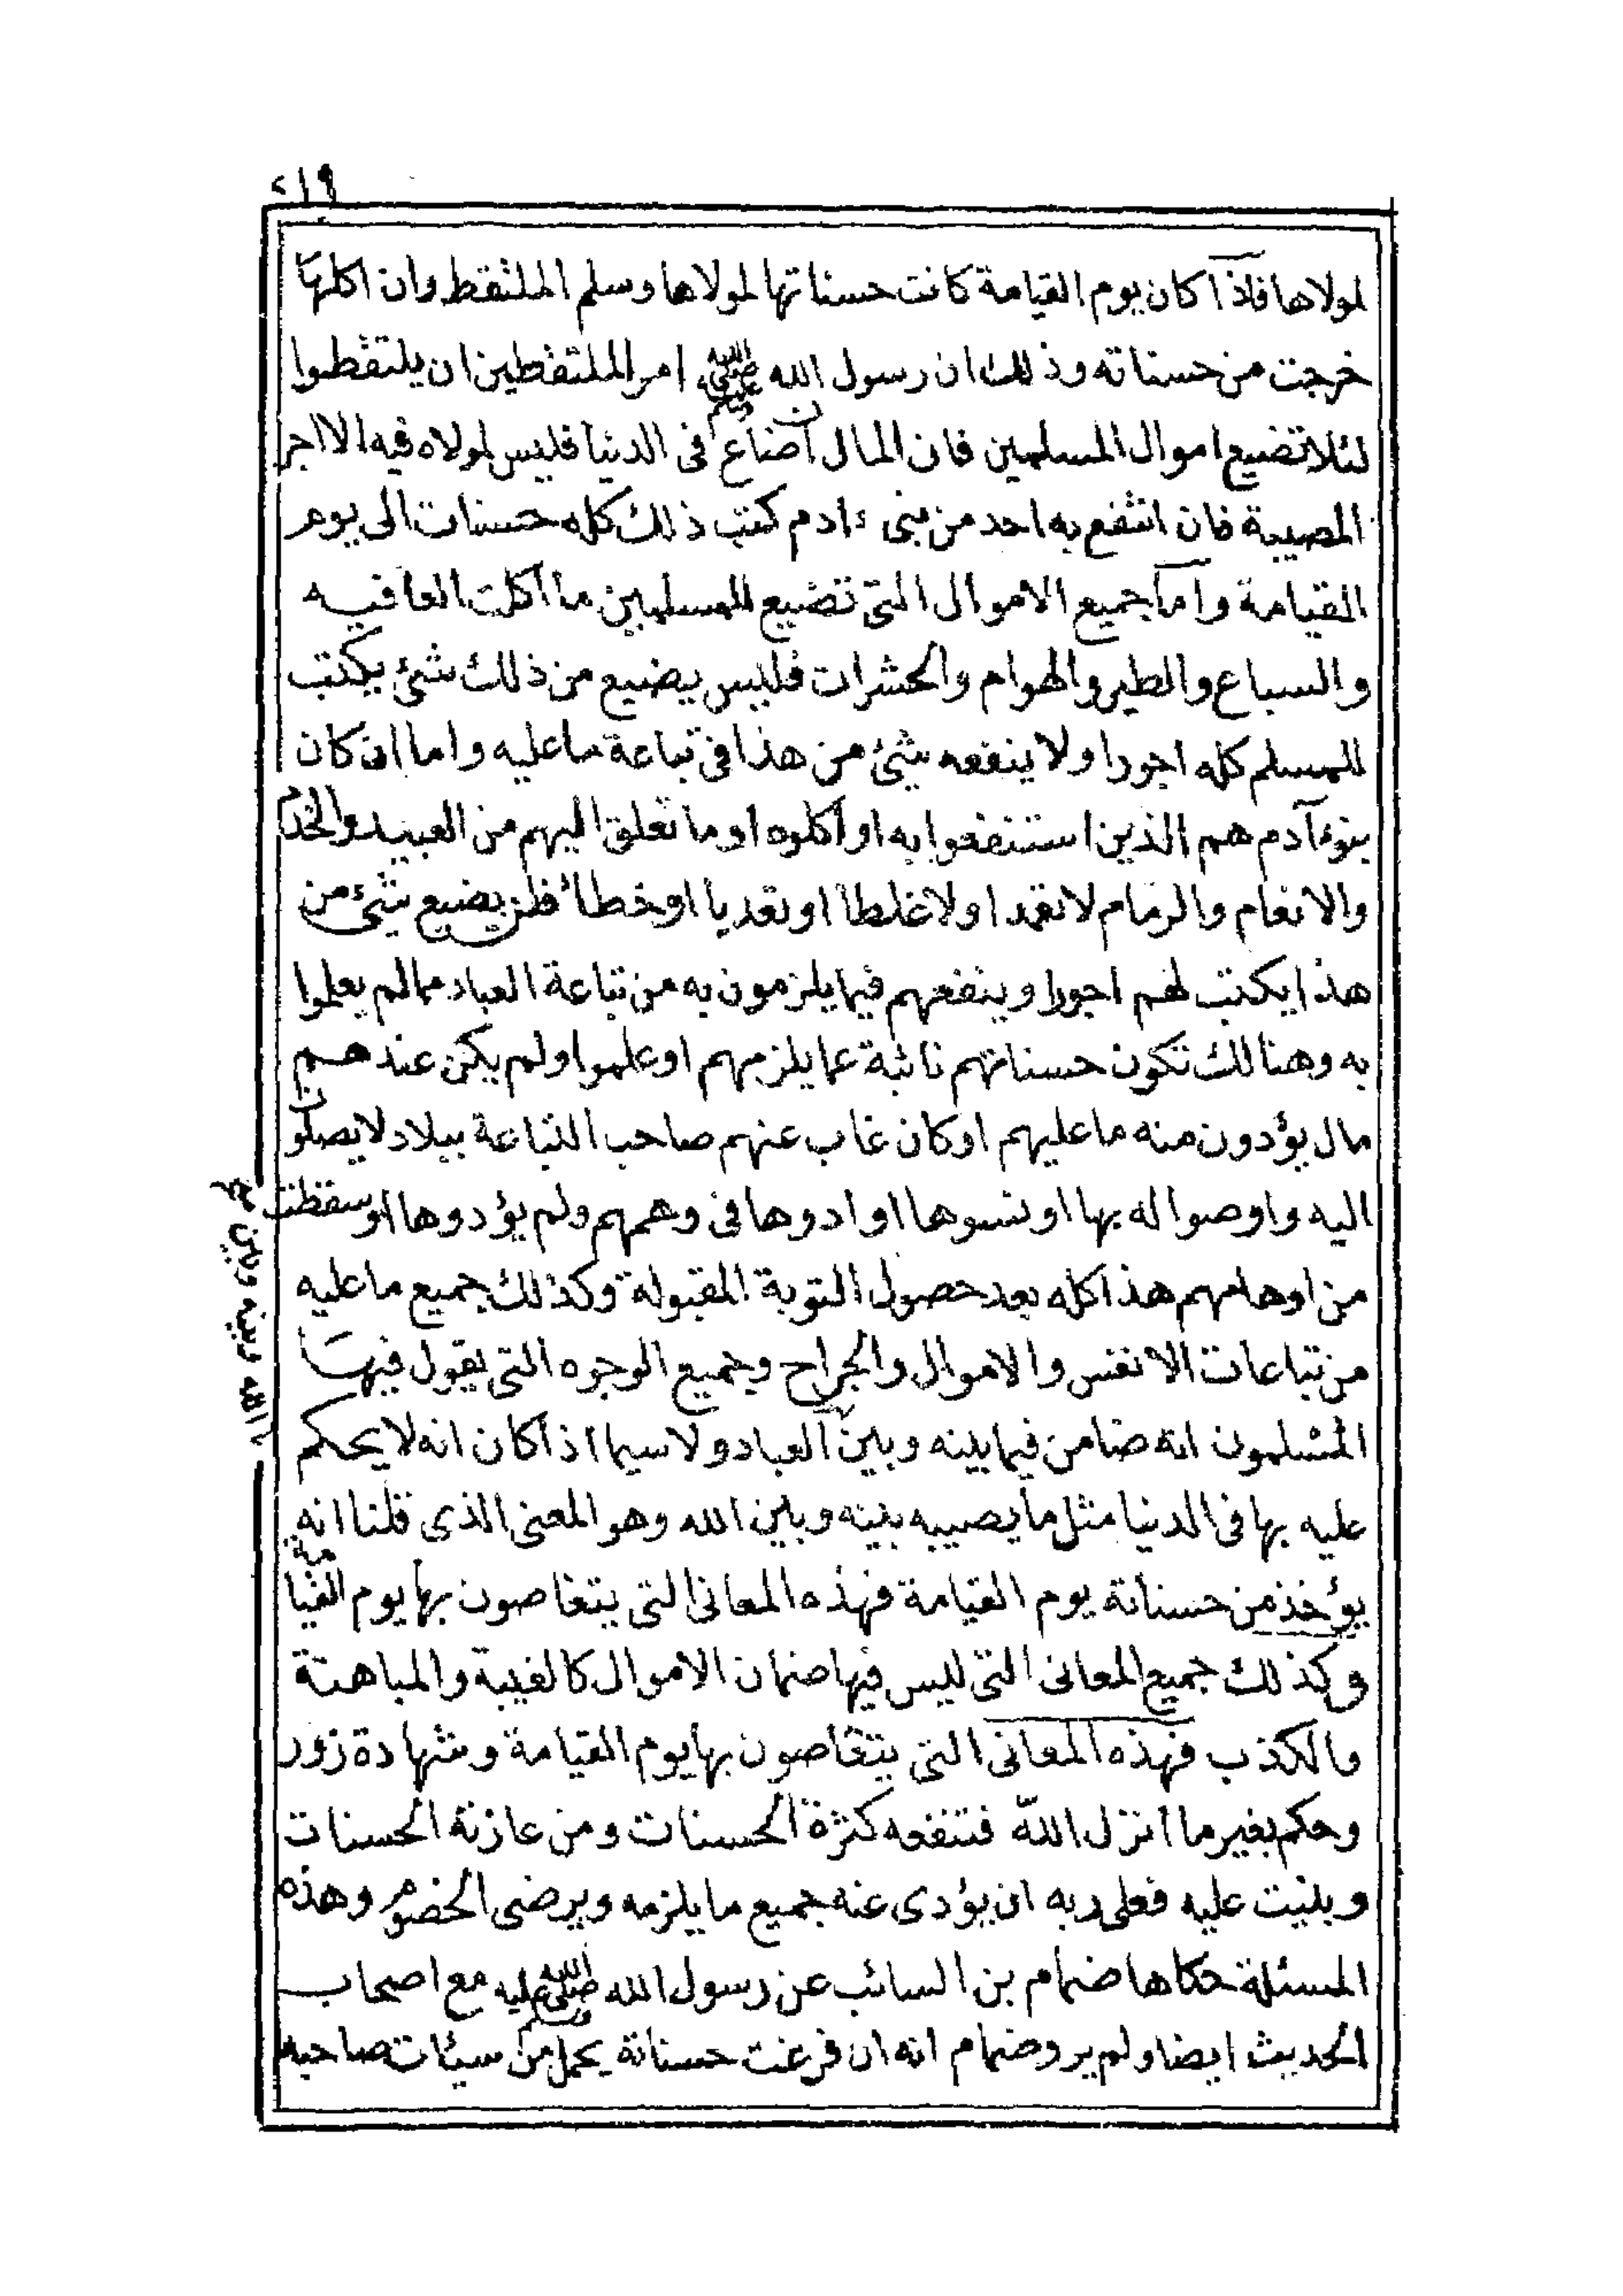 ٢١٩
لمولاها فاذا كان يوم القيامة كانت حسناتها لمولاها وسلم الملتقط وان اكلها
خرجت من حسناته وذلك ان رسول الله صلى الله عليه وسلم امر الملتقطين ان يلتقطوا
لئلا تضيع اموال المسلمين فان المال ان ضاع فى الدنيا فليس لمولاه فيه الا اجر
المصيبة فان انتفع به احد من بنى ءادم كتب ذلك كله حسنات الى يوم
القيامة واما جميع الاموال التى تضيع للمسلمين ما اكلت العافيه
والسباع والطير والهوام والحشرات فليس يضيع من ذلك شئ يكتب
للمسلم كله اجورا ولا ينفعه شئ من هذا فى تباعة ما عليه واما ان كان
بنو ءادم هم الذين استنفعوا به او اكلوه او ما تعلق اليهم من العبيد والخدم
والانعام والرمام لا تعمدا ولا غلطا او تعديا او خطأ فلن يضيع شئ من
هذا يكتب لهم اجورا وينفعهم فيما يلزمون به من تباعة العباد مما لم يعلموا
به وهنالك تكون حسناتهم نائبة عما يلزمهم او علموا ولم يكن عندهم
مال يؤدون منه ما عليهم او كان غاب عنهم صاحب التباعة ببلاد لا يصلون
اليه واوصوا له بها او نسوها او ادوها فى وهمهم ولم يؤدوها او سقطت
من اوهامهم هذا كله بعد حصول التوبة المقبولة وكذلك جميع ما عليه
من تباعات الانفس والاموال والجراح وجميع الوجوه التى يقول فيها
المسلمون انه ضامن فيما بينه وبين العباد ولا سيما اذا كان انه لا يحكم
عليه بها فى الدنيا مثل ما يصيبه بينه وبين الله وهو المعنى الذى قلنا انه
يؤخذ من حسناته يوم القيامة فهذه المعانى التى يتقاصون بها يوم القيامة
وكذلك جميع المعانى التى ليس فيها ضمان الاموال كالغيبة والمباهتة
والكذب فهذه المعانى التى يتقاصون بها يوم القيامة وشهادة زور
وحكم بغير ما انزل اللّه فتنفعه كثرة الحسنات ومن عازته الحسنات
وبليت عليه فعلى ربه ان يؤدى عنه جميع ما يلزمه ويرضى الخصوم وهذه
المسئلة حكاها ضمام بن السائب عن رسول الله صلى الله عليه وسلم مع اصحاب
الحديث ايضا ولم يرو ضمام انه ان فرغت حسناته يحمل من سيئات صاحبه
الله وبينه وبين